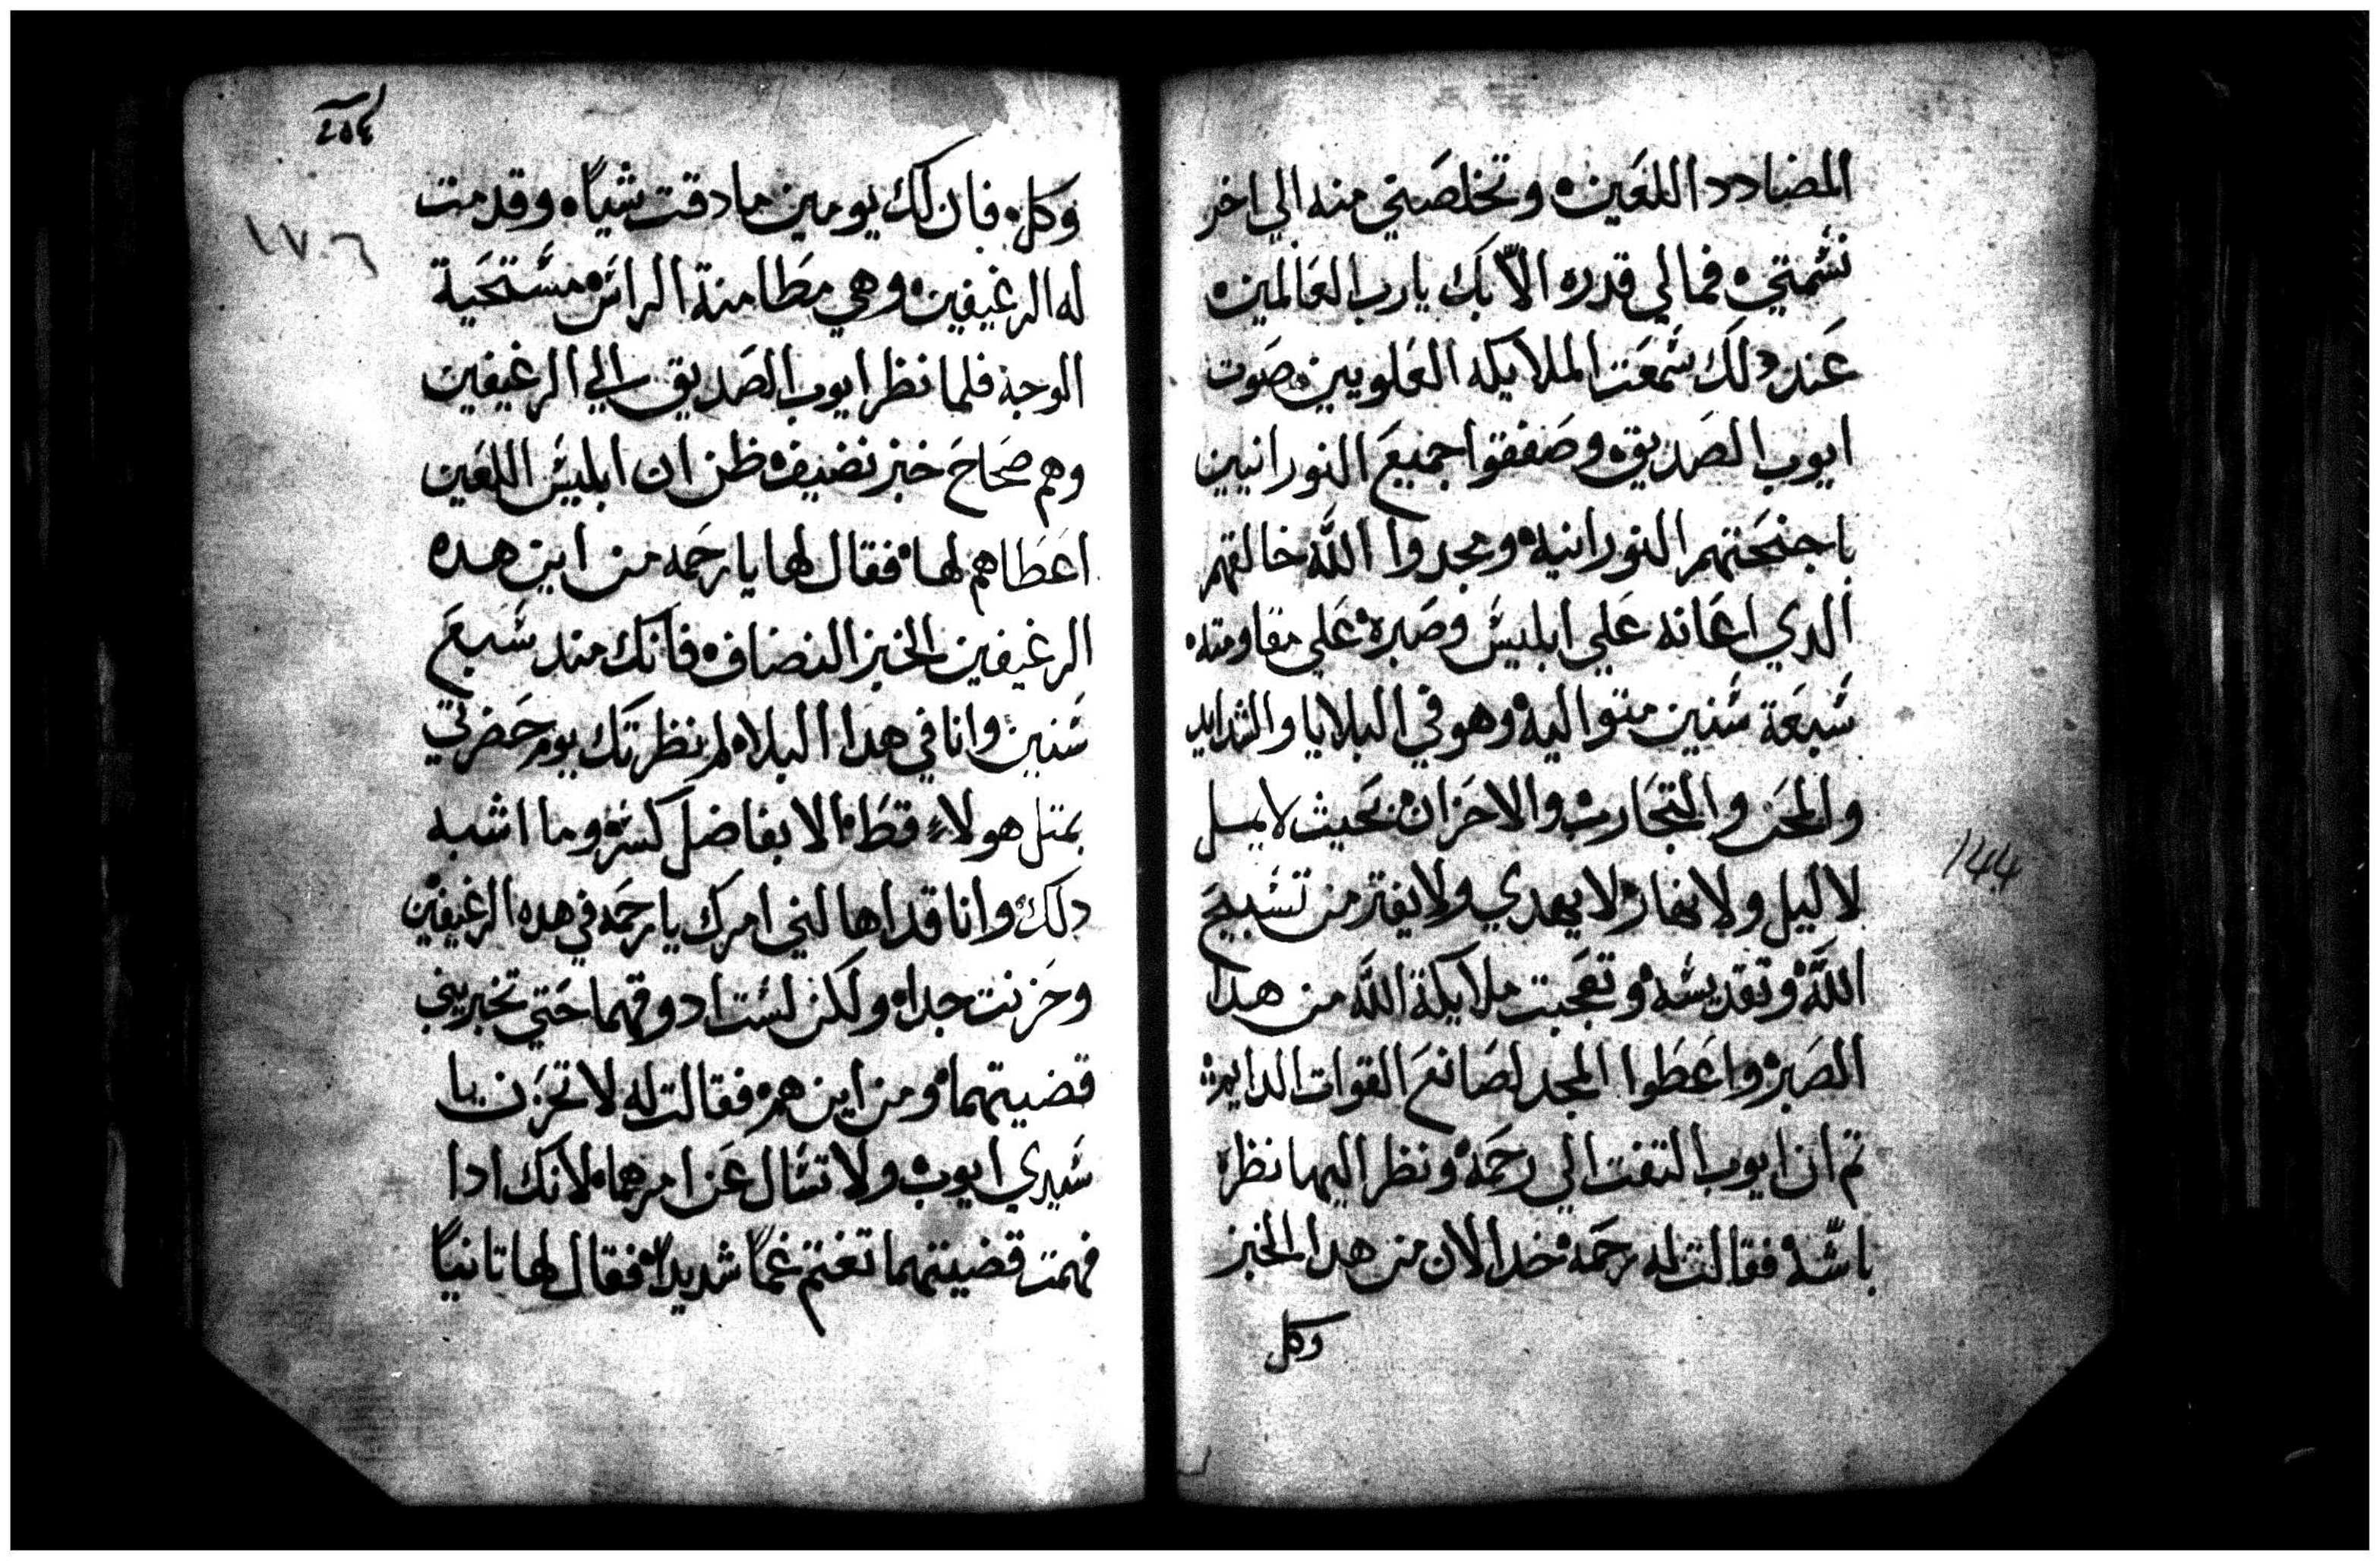 المضادد اللعين ه وتخلصني منه الي اخر
نسمتي ه فمالي قدره الاّ بك يارب العالمين ه
عند دلك سمعت الملايكه العلويين صوت
ايوب الصديق ه وصففوا جميع النورانيين
باجنحتهم النورانيه ه ومجدوا الله خالقهم
الدي اعانه علي ابليس وصبره علي مقاومته ه
سبعة سنين متواليه ه وهو في البلايا والشدايد
والمحن والتجارب والاحزان ه بحيث لا يمل
لا ليل ولا نهار ه لا يهدي ولا يفتر من تسبيح
الله ه وتقديسه ه وتعجبت ملايكة الله من هدا
الصبر ه واعطوا المجد لصانع القوات
تم ان ايوب التفت الي رحمه ه ونظر اليها نظره
باشه ه فقالت له رحمه ه خد الان من هدا الخبز
وكل
١٤٤
٢٥٤
١٧٦
وكل ه فان لك يومين ما دقت شياً ه وقدمت
له الرغيفين ه وهي مطامنة الراس ه مستحية
الوجه فلما نظر ايوب الصديق الي الرغيفين
وهم صحاح خبز نضيف ه ظن ان ابليس اللعين
اعطاهم لها ه فقال لها يا رحمه من اين هده
الرغيفين الخبز النضاف ه فانك مند سبع
سنين وانا في هدا البلا ه لم نظرتك يوم حضرتي
بمتل هولاء قط ه الا بفاضل كسره وما اشبه
دلك ه وانا قد اهالني امرك يا رحمه في هده الرغيفين
وحزنت جدا ه ولكن لست ادوقهما حتي تخبريني
قضيتهما ه ومن اين هم ه فقالت له لا تحزن يا
سيدي ايوب ه ولا تسال عن امرهما ه لانك ادا
فهمت قضيتهما تغتم غماً شديداً ه فقال لها تانياً